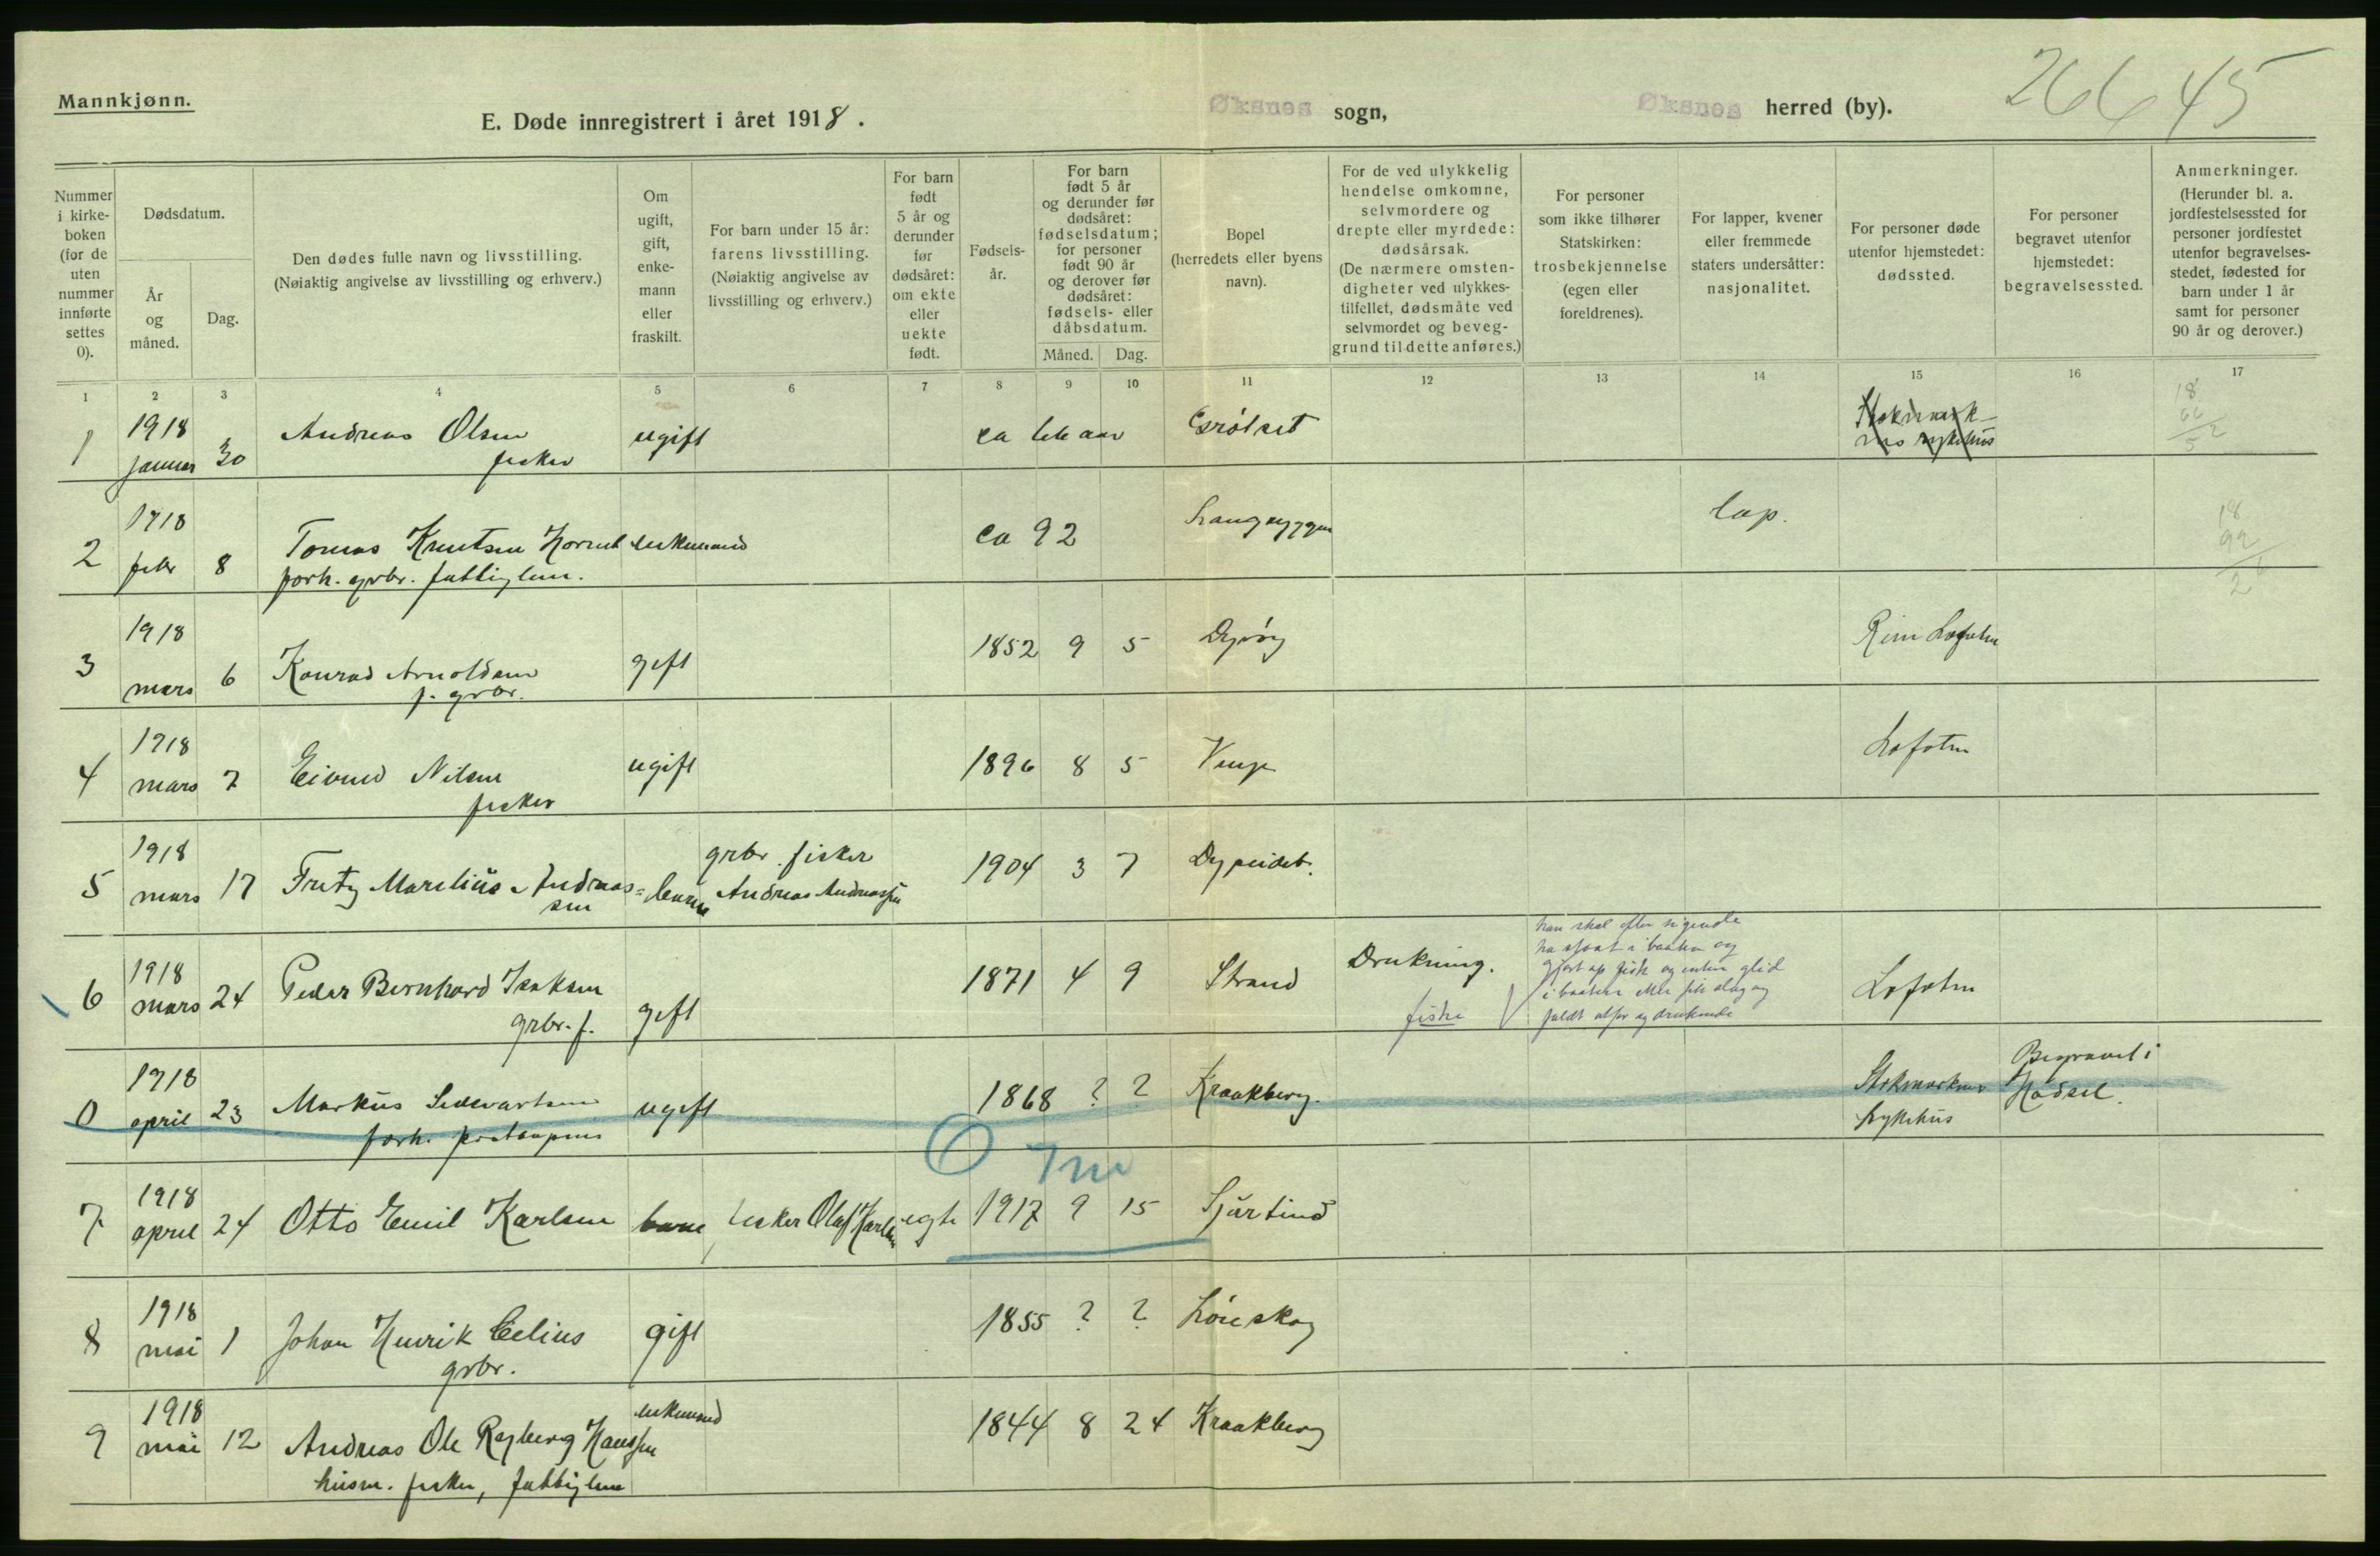 Mannkjønn.
E. Døde innregistrert i året 1918.
Øksnes sogn,
Øksnes herred (by).
266 45
Nummer i kirke-boken (for de uten nummer innførte settes 0).
Dødsdatum.
År og måned.
Dag.
Den dødes fulle navn og livsstilling.
(Nøiaktig angivelse av livsstilling og erhverv.)
Om ugift, gift, enke-mann eller fraskilt.
For barn under 15 år: farens livsstilling.
(Nøiaktig angivelse av livsstilling og erhverv.)
For barn født 5 år og derunder før dødsåret: om ekte eller uekte født.
Fødsels-år.
For barn født 5 år og derunder før dødsåret: fødselsdatum; for personer født 90 år og derover før dødsåret: fødsels- eller dåbsdatum.
Måned. Dag.
Bopel
(herredets eller byens navn).
For de ved ulykkelig hendelse omkomne, selvmordere og drepte eller myrdede: dødsårsak.
(De nærmere omsten-digheter ved ulykkes-tilfellet, dødsmåte ved selvmordet og beveg-grund til dette anføres.)
For personer som ikke tilhører Statskirken: trosbekjennelse (egen eller foreldrenes).
For lapper, kvener eller fremmede staters undersåtter: nasjonalitet.
For personer døde utenfor hjemstedet: dødssted.
For personer begravet utenfor hjemstedet: begravelsessted.
Anmerkninger.
(Herunder bl. a. jordfestelsessted for personer jordfestet utenfor begravelses-stedet, fødested for barn under 1 år samt for personer 90 år og derover.)
1 2 3 4 5 6 7 8 9 10 11 12 13 14 15 16 17
1 1918 januar 30 Andreas Olsen ugift ca 66 aar
fisker
18
66
52
2 1918 febr 8 Tomas Knutsen enkemand ca 92 Langryggen lap.
forh. grbr. fattiglem.
18
92
26
3 1918 mars 6 Konrad Arnoldsen gift 1852 9 5 Dyrøy Lofoten
f. grbr.
4 1918 mars 7 Eivind Nilsen ugift 1896 8 5 Lofoten
fisker
5 1918 mars 17 Fritz Marelius Andreas=sen barn grbr. fisker Andreas Andreassen 1904 3 7 Dypeidet.
6 1918 mars 24 Peder Bernhard Isaksen gift 1871 4 9 Strand Drukning. Lofoten
grbr. f.
fiske
han skal efter sigende
ha staat i baaten og
gjort op fisk og enten glid
i baaten eller fik slag og
faldt utfor og druknede
0 1918 april 23 Markus ugift 1868 ? ? Kraakberg. Stokmarknes Sykehus Begravet i Hadsel.
forh.
0 7 m
7 1918 april 24 Otto Emil Karlsen barn fisker Olaf Karlsen egte 1917 9 15 Tjurtind
8 1918 mai 1 Johan Henrik Celius gift 1855 ? ? Lønskog
grbr.
9 1918 mai 12 Andreas Ole Hanssen enkemand 1844 8 24 Kraakberg
husm. fisker, fattiglem